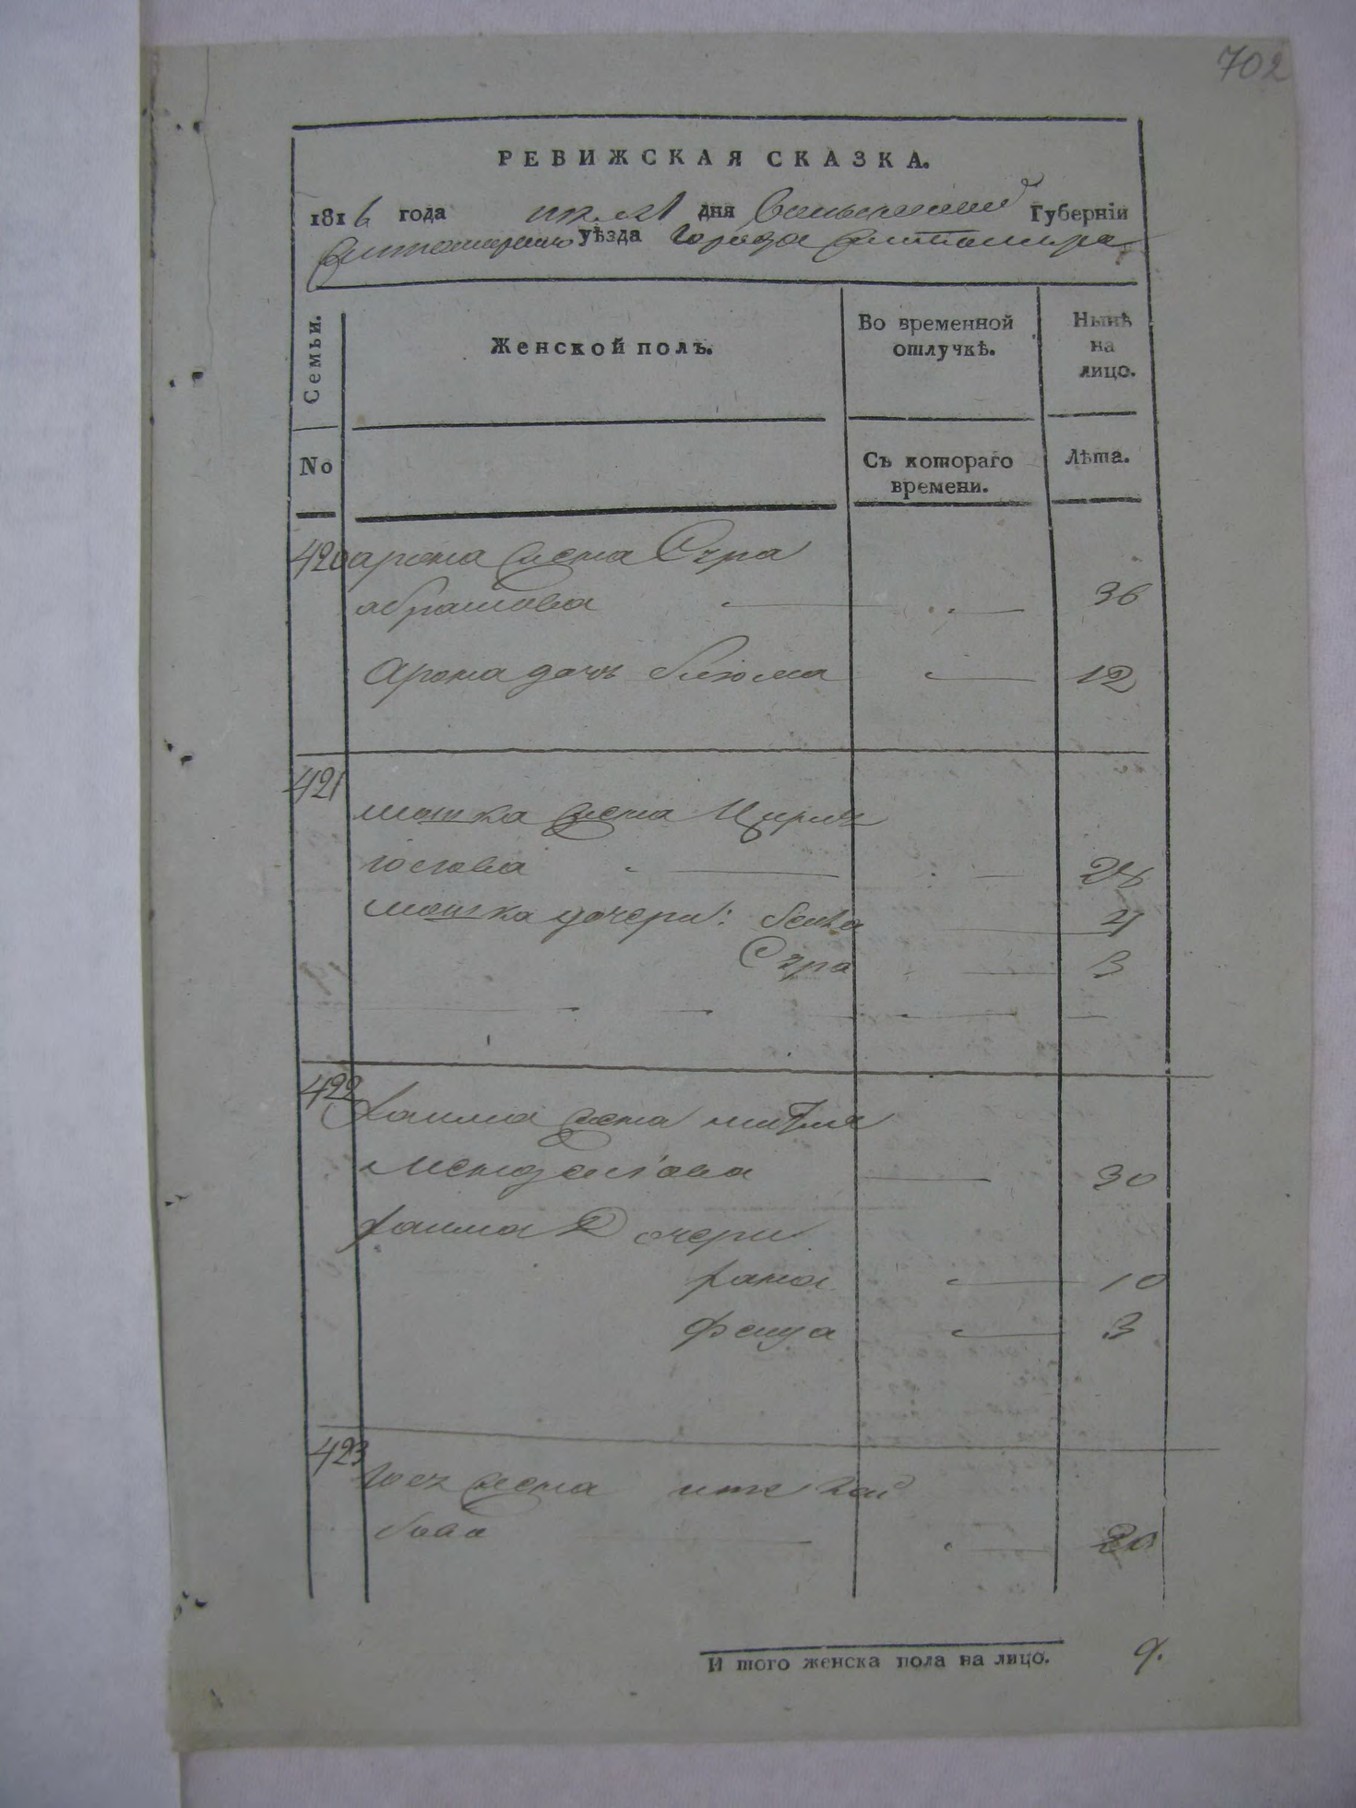 702
РЕВИЖСКАЯ СКАЗКА.
1816 года дня Волынской Губерніи
Житомирскаго уѣзда Города Житомира
Семьи.
Женской полъ.
Во временной отлучкѣ.
Нынѣ на лицо.
No
Съ котораго времени.
Лѣта.
420 арона жена Сура
абрамова 36
арона дочь блюма 12
421
мошка жена Цирля
иосіова 28
мошка дочери: бейла 4
Сура 3
422
хаима жена
Менделiова 30
хаима Дочери
хана 10
Фейга 3
423
жена хай
бова 20
И того женска пола на лицо. 9.